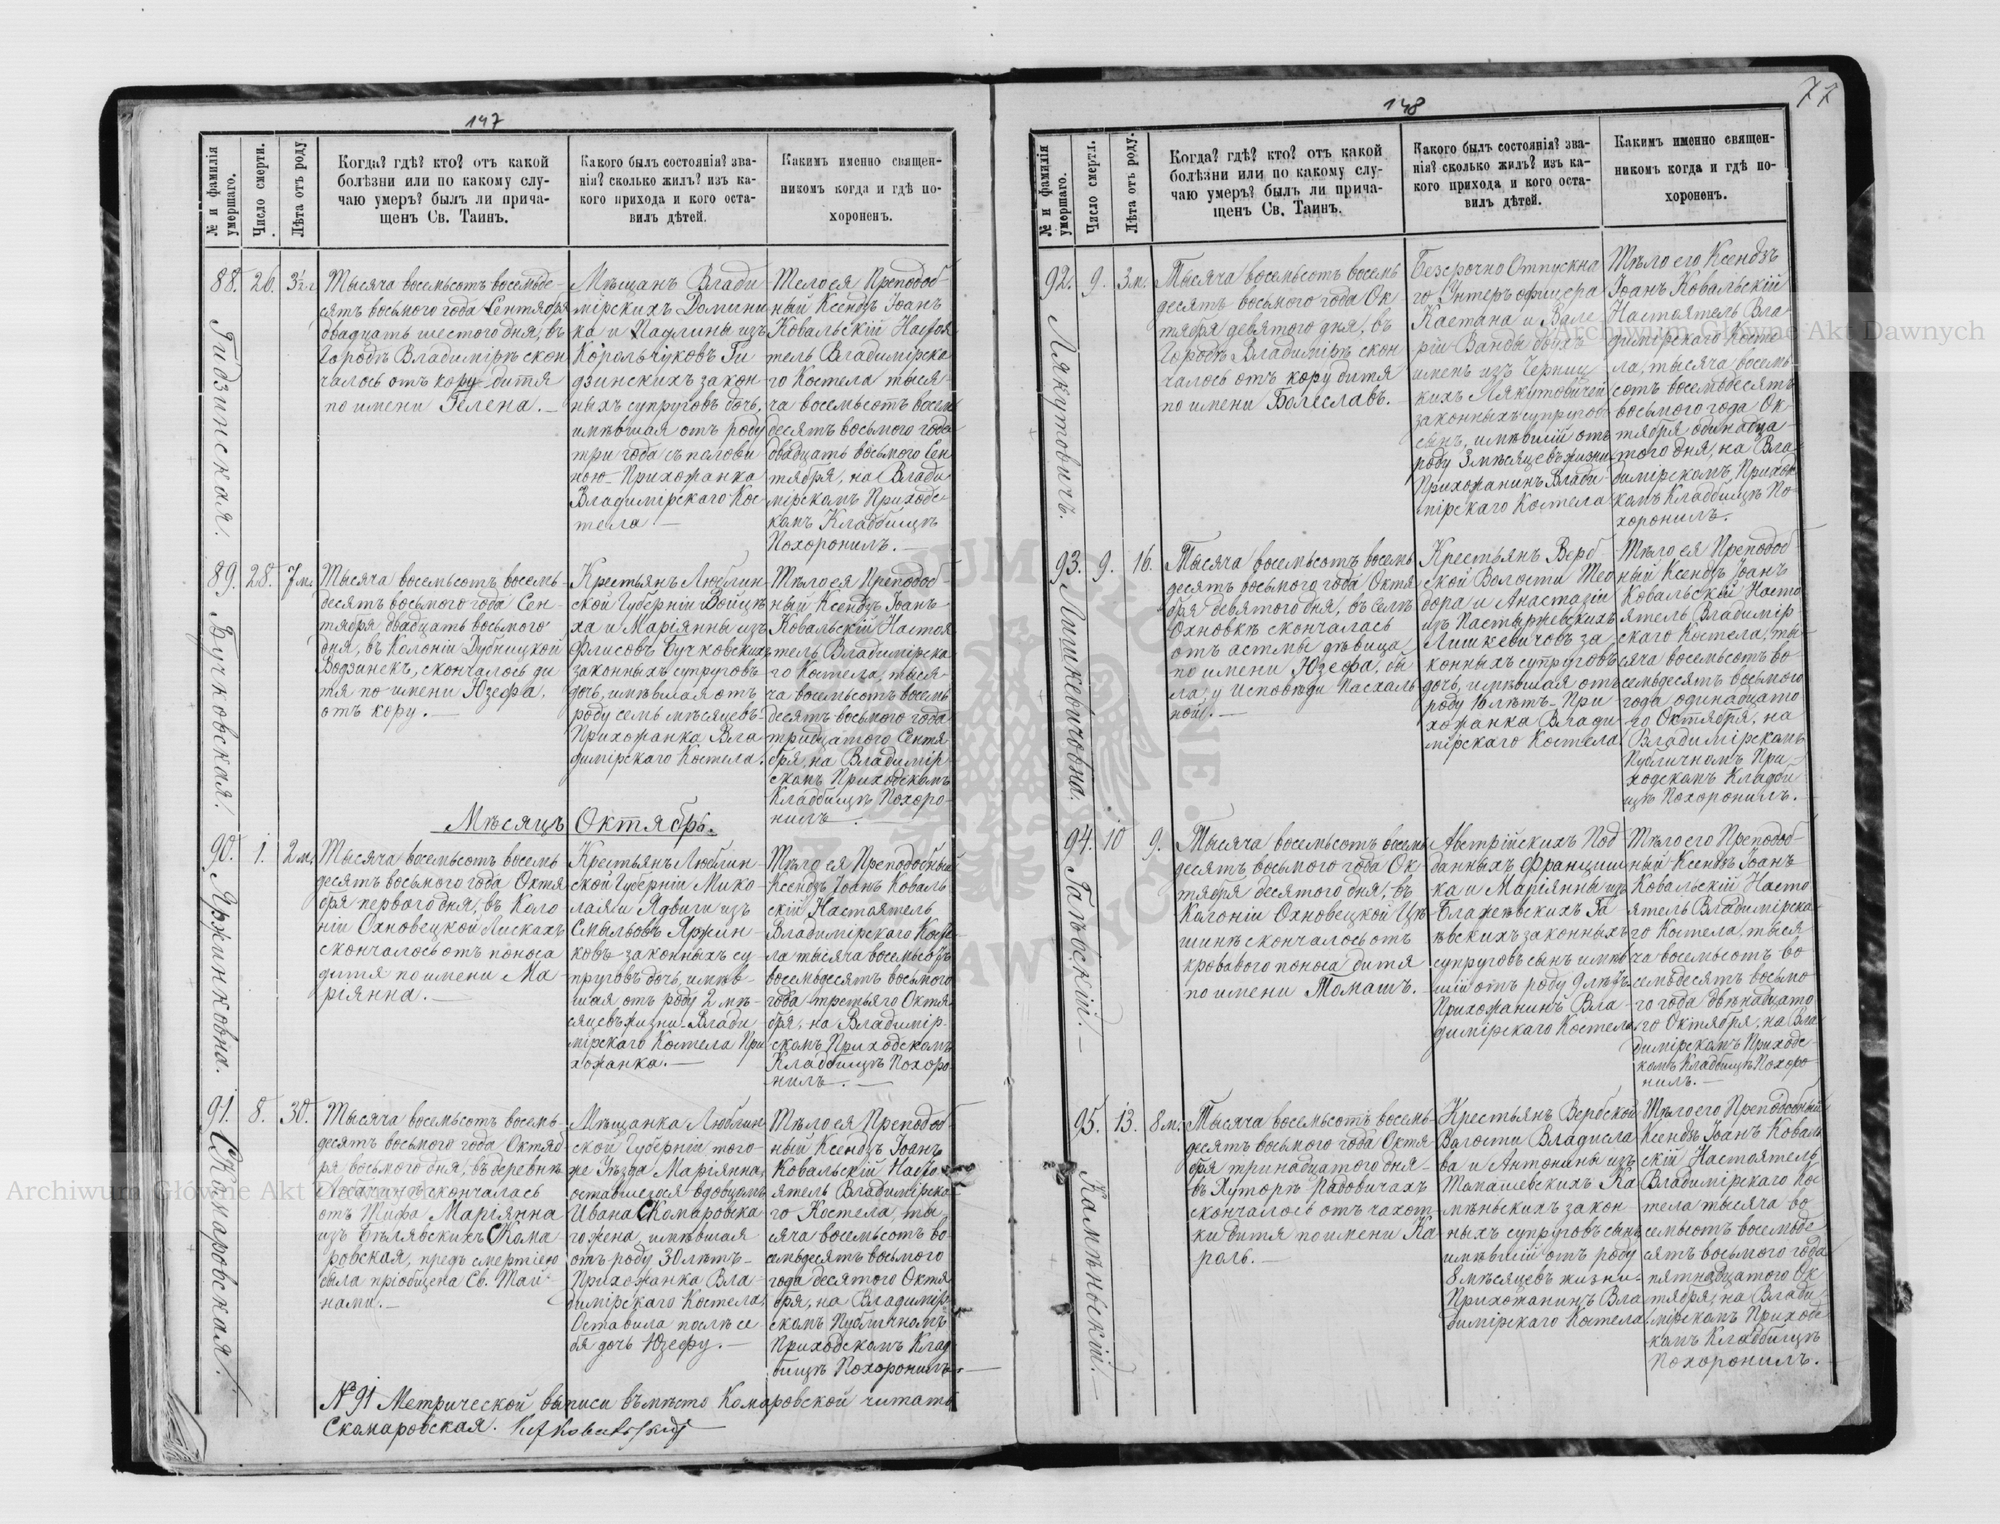 147
№ и фамилія умершаго.
Число смерти.
Лѣта отъ роду
Когда? гдѣ? кто? отъ какой
болѣзни или по какому слу-
чаю умеръ? былъ ли прича-
щенъ Св. Таинъ.
Какого былъ состоянія? зва-
нія? сколько жилъ? изъ ка-
кого прихода и кого оста-
вилъ дѣтей.
Какимъ именно священ-
никомъ когда и гдѣ по-
хороненъ.
88. Гидзинская.
26.
3½ г
Тысяча восемьсотъ восемьде-
сятъ восьмого года Сентября
двадцать шестого дня, въ
Городѣ Владимірѣ скон
чалось отъ кору дитя
по имени Гелена. —
Мѣщанъ Влади
мірскихъ Домини
ка и Паулины изъ
Корольчуковъ Ги
дзинскихъ закон
ныхъ супруговъ дочь,
имѣвшая отъ роду
три года съ полови
ною – Прихожанка
Владимірскаго Кос
тела —
Тело ея Преподоб-
ный Ксендзъ Іоанъ
Ковальскій Настоя
тель Владимірска
го Костела тыся-
ча восемьсотъ восемь
десятъ восьмого года
двадцать восьмого Сен
тября, на Влади
мірскомъ Приходс-
комъ Кладбищѣ
Похоронилъ. —
89. Бучковская.
28.
7 м.
Тысяча восемьсотъ восемь-
десятъ восьмого года Сен-
тября двадцать восьмого
дня, въ Колоніи Дубницкой
Водзинекъ, скончалось ди
тя по имени Юзефа,
отъ кору. —
Крестьянъ Люблин
ской Губерніи Войцѣ
ха и Маріянны изъ
Флисовъ Бучковскихъ
законныхъ супруговъ
дочь, имѣвшая отъ
роду семь мѣсяцевъ-
Прихожанка Вла
димірскаго Костела.
Тѣло ея Преподоб-
ный Ксендзъ Іоанъ
Ковальскій Настоя
тель Владимірска
го Костела, тыся-
ча восемьсотъ восемь
десятъ восьмого года
тридцатого Сентя
бря, на Владимір-
скомъ Приходскомъ
Кладбищѣ Похоро-
нилъ —
Мѣсяцъ Октябрь.
90. Яржинковна.
1.
2 м.
Тысяча восемьсотъ восемь
десятъ восьмого года Октя
бря первого дня, въ Коло
ніи Охновецкой Лискахъ
скончалось отъ поноса
дитя по имени Ма
ріянна. —
Крестьянъ Люблин-
ской Губерніи Мико-
лая и Ядвиги изъ
Смыльвовъ Яржин-
ковъ законныхъ су
пруговъ дочь, имѣв-
шая отъ роду 2 мѣ
сяцевъ жизни – Влади
мірскаго Костела При
хожанка. —
Тѣло ея Преподобный
Ксендзъ Іоанъ Коваль
скій Настоятель
Владимірскаго Косте
ла тысяча восемьсотъ
восемьдесятъ восьмого
года третьяго Октя
бря, на Владимір-
скомъ Приходскомъ
Кладбищѣ Похоро
нилъ. —
91. Скомаровская.
8.
30.
Тысяча восемьсотъ восемь-
десятъ восьмого года Октяб
ря восьмого дня, въ деревнѣ
скончалась
отъ Тифа Маріянна
изъ Бѣлявскихъ Скома
ровская, предъ смертію
была пріобщена Св. Тай-
нами. —
Мѣщанка Люблин
ской Губерніи того-
же Уѣзда Маріянна,
оставшегося вдовцомъ
Ивана Скомаровска
го жена, имѣвшая
отъ роду 30 лѣтъ –
Прихожанка Вла-
димірскаго Костела,
Оставила послѣ се-
бя дочь Юзефу. —
Тѣло ея Преподоб-
ный Ксендзъ Іоанъ
Ковальскій Насто-
ятель Владимірска
го Костела, ты-
сяча восемьсотъ во-
семьдесятъ восьмого
года десятого Октя
бря, на Владимір
скомъ Публичномъ
Приходскомъ Клад
бищѣ Похоронилъ. —
№ 91 Метрической выписи вмѣсто Комаровской читать
Скомаровская.
148
77
№ и фамилія умершаго.
Число смерти.
Лѣта отъ роду.
Когда? гдѣ? кто? отъ какой
болѣзни или по какому слу-
чаю умеръ? былъ ли прича-
щенъ Св. Таинъ.
Какого былъ состоянія? зва-
нія? сколько жилъ? изъ ка-
кого прихода и кого оста-
вилъ дѣтей.
Какимъ именно священ-
никомъ когда и гдѣ по-
хороненъ.
92. Лякутовичъ.
9.
3 м.
Тысяча восемьсотъ восемь
десятъ восьмого года Ок
тября девятого дня, въ
Городѣ Владимірѣ скон
чалось отъ кору дитя
по имени Болеславъ. —
Безсрочно Отпускна
го Унтеръ офицера
Каетана и Вале
ріи Ванды двухъ
именъ изъ Черниц
кихъ Лякутовичей
законныхъ супругов
сынъ, имѣвшій отъ
роду 3 мѣсяцевъ жизни
Прихожанинъ Влади-
мірскаго Костела
Тѣло его Ксендзъ
Іоанъ Ковальскій
Настоятель Вла
димірскаго Косте
ла, тысяча восемь
сотъ восемьдесятъ
восьмого года Ок-
тября одинадца-
того дня, на Вла-
димірскомъ Приход
комъ Кладбищѣ По-
хоронилъ.
93. Лишкевичовна.
9.
16.
Тысяча восемьсотъ восемь
десятъ восьмого года Октя
бря девятого дня, въ селѣ
Охновкѣ скончалась
отъ астмы дѣвица
по имени Юзефа, бы
ла у исповѣди Пасхаль
ной. —
Крестьянъ Верб-
ской Волости Тео
дора и Анастазіи
изъ Пастыржевскихъ
Лишкевичовъ за
конныхъ супруговъ
дочь, имѣвшая отъ
роду 16 лѣтъ – При
хожанка Влади
мірскаго Костела
Тѣло ея Преподоб-
ный Ксендзъ Іоанъ
Ковальскій Насто
ятель Владимір
скаго Костела, ты-
сяча восемьсотъ во
семьдесятъ восьмого
года одинадцато
го Октября, на
Владимірскомъ
Публичномъ При
ходскомъ Кладби-
щѣ Похоронилъ. —
94. Гаѣвскій. —
10
9.
Тысяча восемьсотъ восемь
десятъ восьмого года Ок
тября десятого дня, въ
Колоніи Охновецкой Цѣ
шинѣ скончалось отъ
кроваваго поноса дитя
по имени Томашъ. —
Австрійскихъ Под
данныхъ Францишш
ка и Маріянны изъ
Блажевскихъ Га-
ѣвскихъ законныхъ
супруговъ сынъ имѣв
шій отъ роду 9 лѣтъ
Прихожанинъ Вла-
димірскаго Костела,
Тѣло его Преподоб-
ный Ксендзъ Іоанъ
Ковальскій Насто
ятель Владимірска
го Костела, тыся
ча восемьсотъ во
семьдесятъ восьмо
го года двѣнадцато
го Октября, на Вла
димірскомъ Приходс-
комъ Кладбищѣ Похоро
нилъ. —
95. Камѣньскій. —
13.
8 м.
Тысяча восемьсотъ восемь-
десятъ восьмого года Октя
бря тринадцатого дня –
въ Хуторѣ Радовичахъ
скончалось отъ чахот
ки дитя по имени Ка
роль. —
Крестьянъ Вербской
Волости Владисла
ва и Антонины изъ
Томашевскихъ Ка
мѣньскихъ закон
ныхъ супруговъ сынъ,
имѣвшій отъ роду
8 мѣсяцевъ жизни –
Прихожанинъ Вла
димірскаго Костела
Тѣло его Преподобный
Ксендзъ Іоанъ Коваль
скій Настоятель
Владимірскаго Кос
тела тысяча во
семьсотъ восемьде
сятъ восьмого года
пятнадцатого Ок
тября, на Влади
мірскомъ Приходс
комъ Кладбищѣ
Похоронилъ. —
Archiwum Główne Akt Dawnych
Archiwum Główne Akt Dawnych